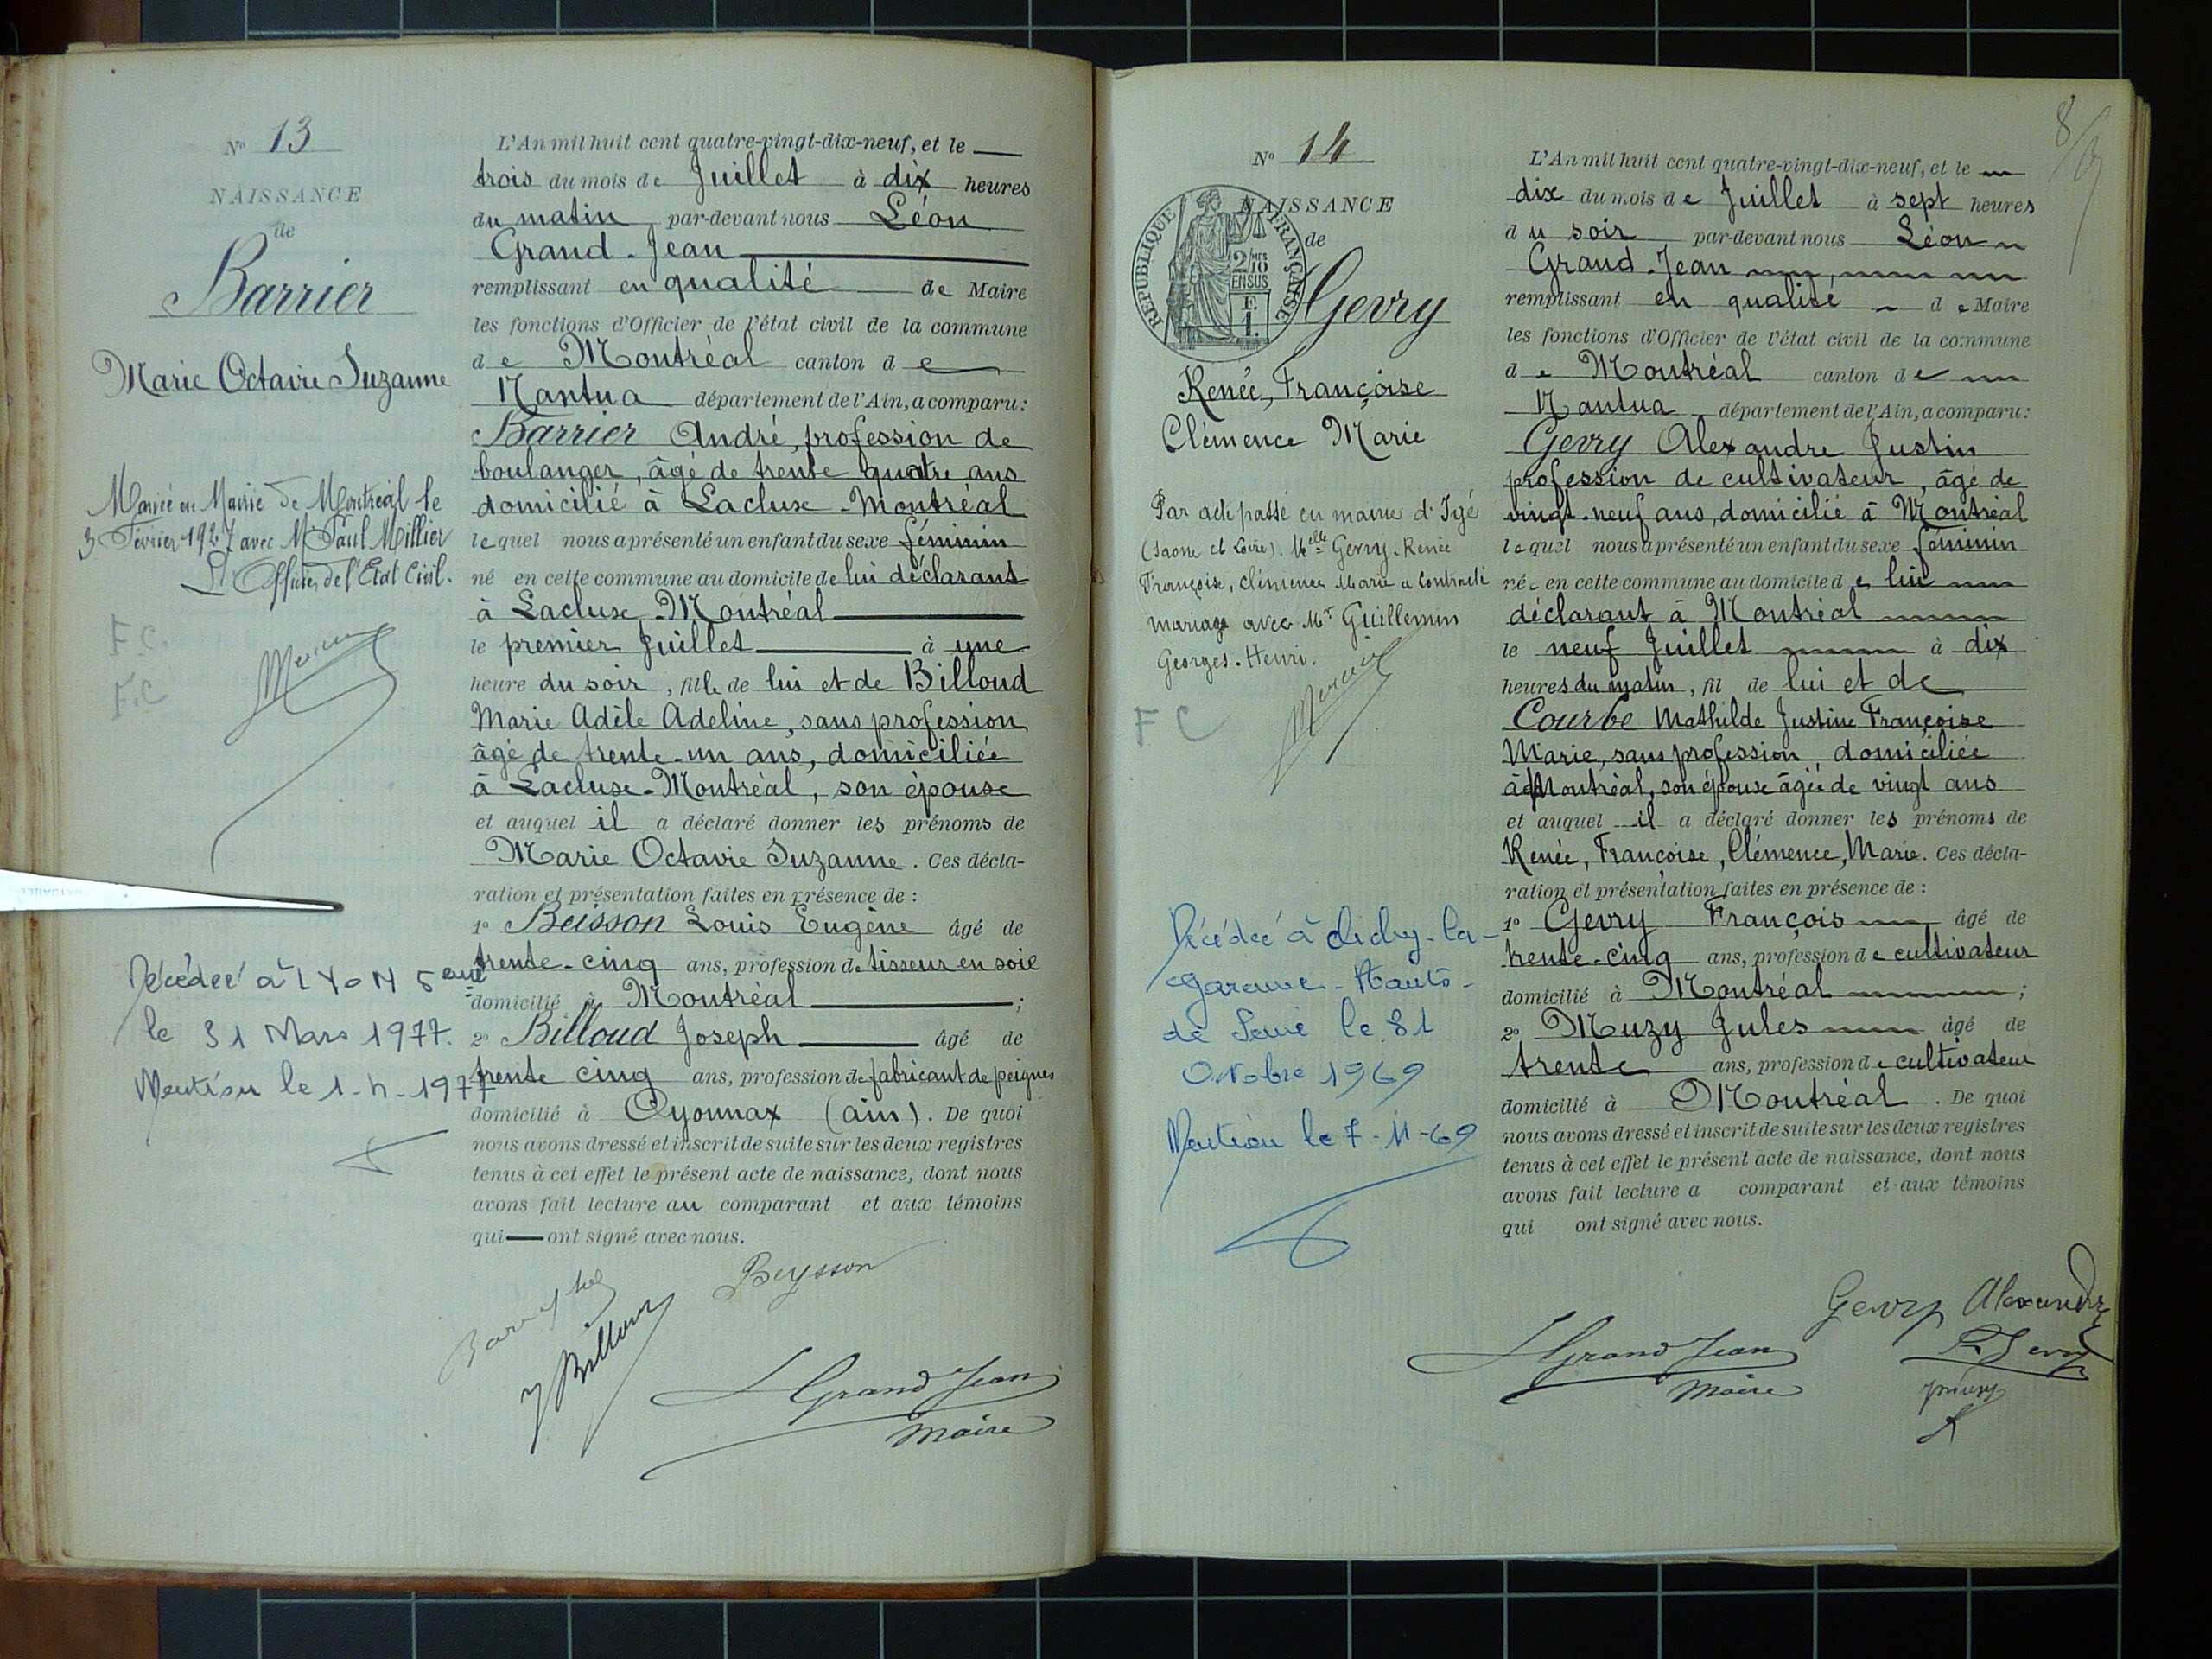 N° 13
NAISSANCE
de
Barrier
Marie Octavie Suzanne
Mariée en Mairie de Montréal le
3 Février 1927 avec M Paul Millier
L'Officier de l'Etat Civil.
F.C.
F.C
Mercier
Décédée à LYON 5eme
le 31 Mars 1977.
Mention le 1-4-1977
L'An mil huit cent quatre-vingt-dix-neuf, et le
trois du mois de Juillet à dix heures
du matin par-devant nous Léon
Grand-Jean
remplissant en qualité de Maire
les fonctions d'Officier de l'état civil de la commune
de Montréal canton de
Nantua département de l'Ain, a comparu:
Barrier André, profession de
boulanger, âgé de trente quatre ans
domicilié à Lacluse-Montréal
lequel nous a présenté un enfant du sexe féminin
né en cette commune au domicile de lui déclarant
à Lacluse-Montréal
le premier Juillet à une
heure du soir, fille de lui et de Billoud
Marie Adèle Adeline, sans profession
âgé de trente-un ans, domiciliée
à Lacluse-Montréal, son épouse
et auquel il a déclaré donner les prénoms de
Marie Octavie Suzanne. Ces décla-
ration et présentation faites en présence de :
1° Beisson Louis Eugène âgé de
trente-cinq ans, profession de tisseur en soie
domicilié à Montréal ;
2° Billoud Joseph âgé de
trente cinq ans, profession de fabricant de peignes
domicilié à Oyonnax (ain). De quoi
nous avons dressé et inscrit de suite sur les deux registres
tenus à cet effet le présent acte de naissance, dont nous
avons fait lecture au comparant et aux témoins
qui ont signé avec nous.
Beysson
J Billoud
L Grand Jean
Maire
8
N° 14
NAISSANCE
de
REPUBLIQUE FRANÇAISE
2/10
EN SUS
Gevry
Renée, Françoise
Clémence Marie
Par acte passé en mairie d'Igé
(Saone et Loire). Melle Gevry-Renée
Françoise, Clémence Marie a contracté
mariage avec Mr Guillemin
Georges-Henri.
F C
Mercier
Décédée à Clichy-la-
Garenne-Hauts-
de Seine le 31
Octobre 1969
Mention le 7-11-69
L'An mil huit cent quatre-vingt-dix-neuf, et le
dix du mois de Juillet à sept heures
du soir par-devant nous Léon
Grand-Jean
remplissant en qualité de Maire
les fonctions d'Officier de l'état civil de la commune
de Montréal canton de
Nantua département de l'Ain, a comparu:
Gevry Alexandre Justin
profession de cultivateur, âgé de
vingt-neuf ans, domicilié à Montréal
lequel nous a présenté un enfant du sexe féminin
née en cette commune au domicile de lui
déclarant à Montréal
le neuf Juillet à dix
heures du matin, fil de lui et de
Courbe Mathilde Justine Françoise
Marie, sans profession, domiciliée
à Montréal, son épouse âgée de vingt ans
et auquel il a déclaré donner les prénoms de
Renée, Françoise, Clémence, Marie. Ces décla-
ration et présentation faites en présence de :
1° Gevry François âgé de
trente-cinq ans, profession de cultivateur
domicilié à Montréal ;
2° Muzy Jules âgé de
trente ans, profession de cultivateur
domicilié à Montréal. De quoi
nous avons dressé et inscrit de suite sur les deux registres
tenus à cet effet le présent acte de naissance, dont nous
avons fait lecture a comparant et aux témoins
qui ont signé avec nous.
Gevry Alexandre
L Grand Jean
Maire
F. Gevry